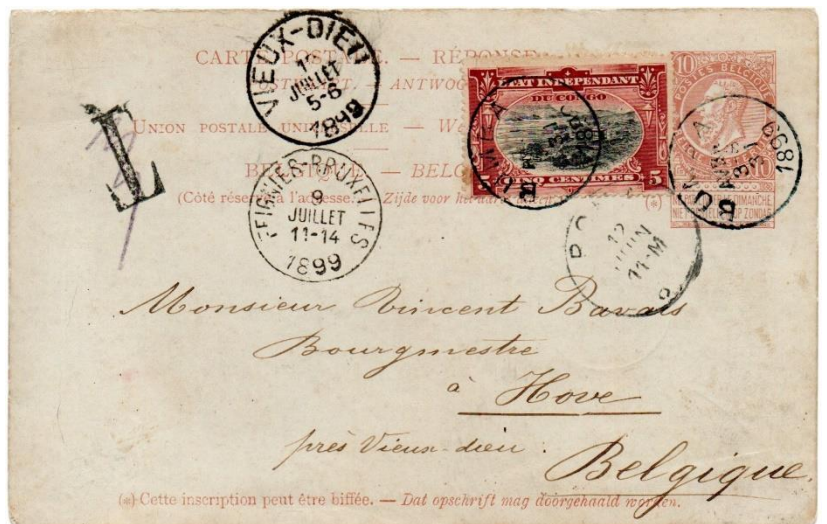 CARTE POSTALE. — RÉPONSE
ANTWOO
UNION POSTALE UNIVERSELLE — W
BELGIQUE. — BELG
(Côté réservé à l'adresse. Zijde voor het adres (*)
VIEUX-DIEU
JUILLET
5-6
1899
ETAT INDEPENDANT
DU CONGO
CINQ CENTIMES 5
BOMA
BOMA
1899
10
POSTES BELGIQUE
10
NE PAS LIVRER LE DIMANCHE
NIET BESTELLEN OP ZONDAG
T
FEIGNIES-BRUXELLES
9
JUILLET
11-14
1899
12
JUIN
11-M
Monsieur Vincent Bavais
Bourgmestre
à Hove
près Vieux-dieu.
Belgique.
(*) Cette inscription peut être biffée. — Dat opschrift mag doorgehaald worden.